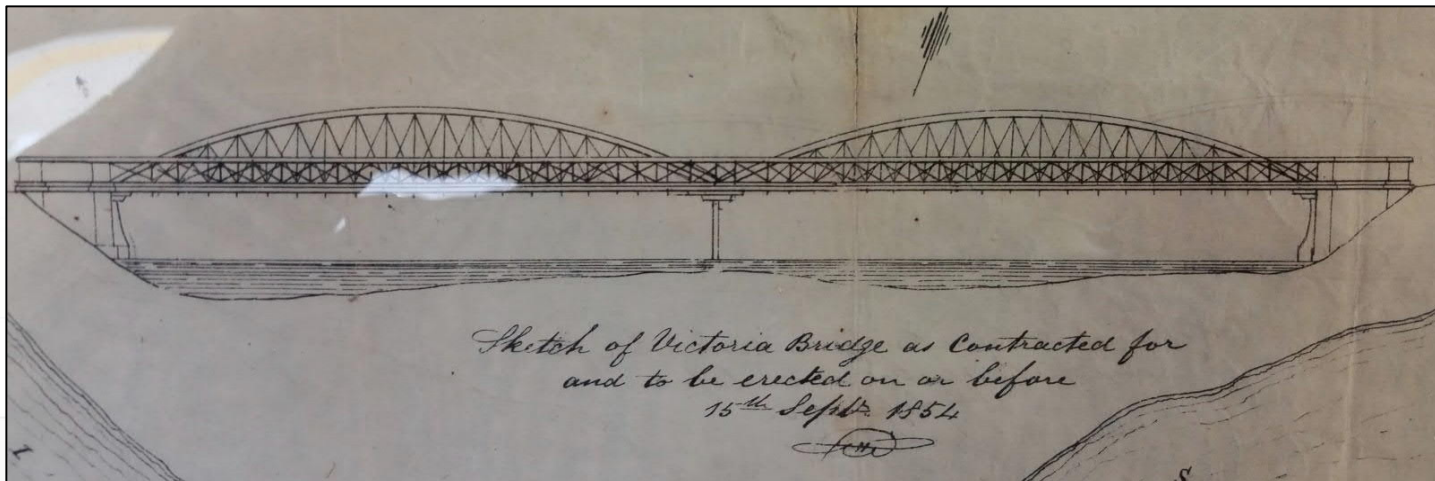 Sketch of Victoria Bridge as Contracted for
and to be erected on or before
15th Septr. 1854
S